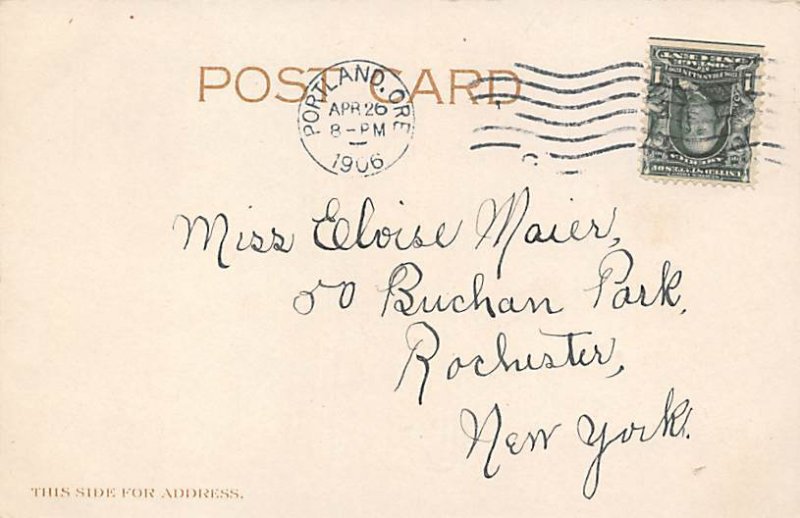 POST CARD
PORTLAND, ORE
APR 26
8-PM
1906
1 1
UNITED STATES OF
AMERICA
Miss Eloise Maier,
50 Buchan Park,
Rochester,
New York.
THIS SIDE FOR ADDRESS.